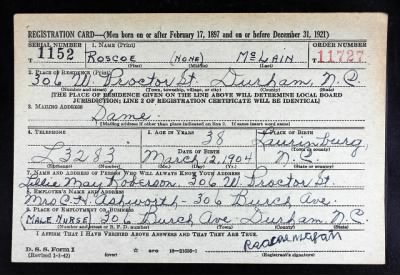 REGISTRATION CARD—(Men born on or after February 17, 1897 and on or before December 31, 1921)
SERIAL NUMBER 1. NAME (Print) ORDER NUMBER
T 1152 ROSCOE (NONE) McLAIN T 11727
2. PLACE OF RESIDENCE (Print)
306 W. Proctor St. Durham, N.C.
(Number and street) (Town, township, village, or city) (County) (State)
[THE PLACE OF RESIDENCE GIVEN ON THE LINE ABOVE WILL DETERMINE LOCAL BOARD
JURISDICTION; LINE 2 OF REGISTRATION CERTIFICATE WILL BE IDENTICAL]
3. MAILING ADDRESS
Same.
[Mailing address if other than place indicated on line 2. If same insert word same]
4. TELEPHONE 5. AGE IN YEARS PLACE OF BIRTH
38 Laurinburg,
DATE OF BIRTH (Town or county)
L3283 March 12, 1904 N.C.
(Mo.) (Day) (Yr.) (State or country)
7. NAME AND ADDRESS OF PERSON WHO WILL ALWAYS KNOW YOUR ADDRESS
Lillie May Roberson. 306 W. Proctor St.
8. EMPLOYER'S NAME AND ADDRESS
Mrs C. H. Ashworth - 306 Burch Ave.
9. PLACE OF EMPLOYMENT OR BUSINESS
(MALE NURSE) 306 Burch Ave Durham, N.C.
(Number and street or R. F. D. number) (Town) (County) (State)
I AFFIRM THAT I HAVE VERIFIED ABOVE ANSWERS AND THAT THEY ARE TRUE.
D. S. S. Form 1
(Revised 1-1-42) (over) 16—21630-1 (Registrant's signature)